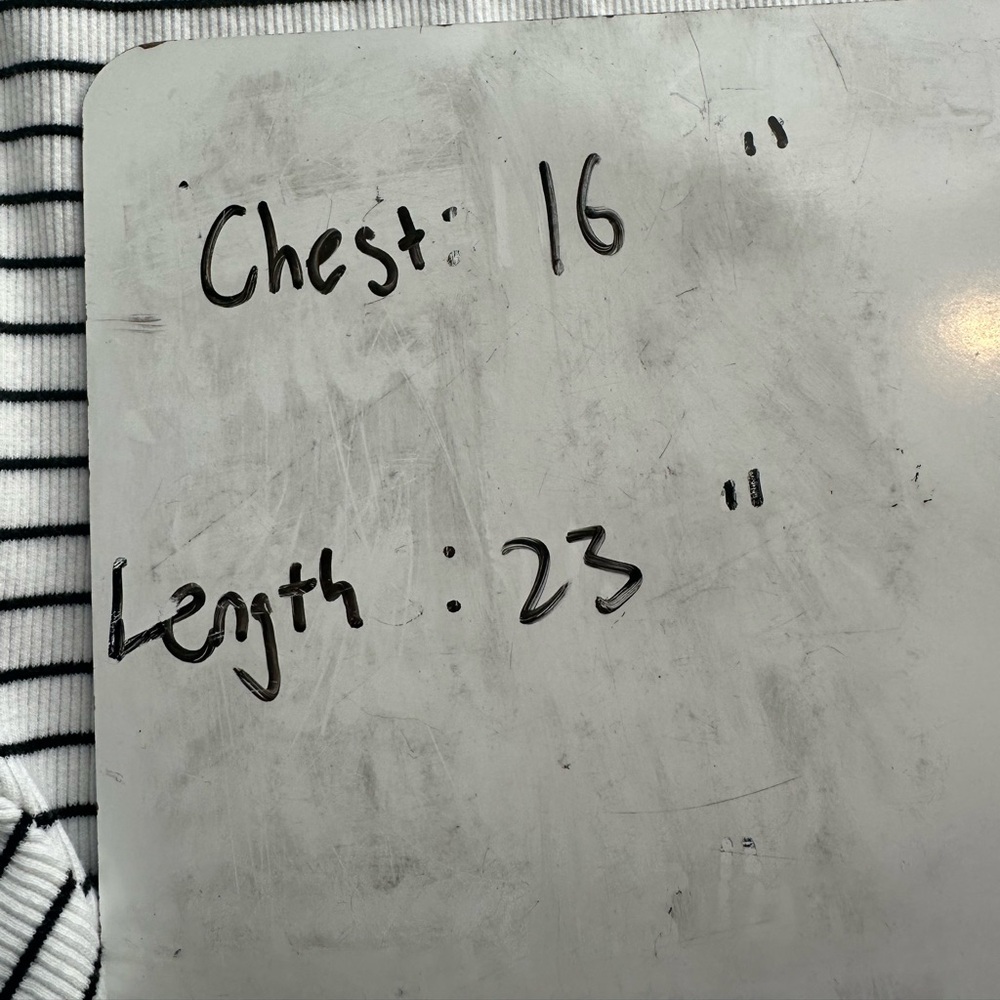 Chest: 16 "
Length : 23 "